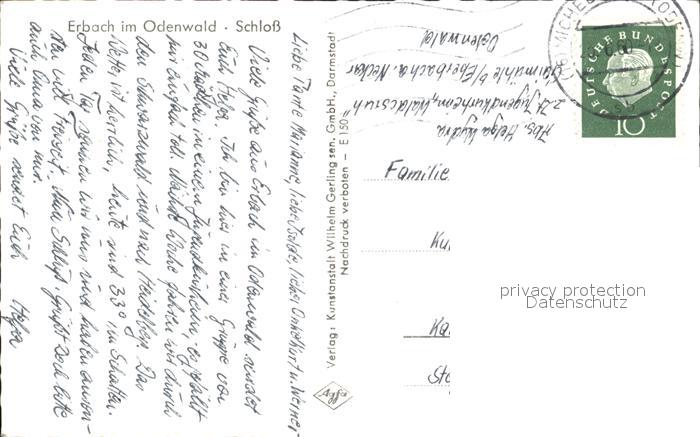 Erbach im Odenwald · Schloß
Liebe Tante Marianne, liebe Isolde, lieber Onkel Kurt u. Werner
Viele Grüße aus Erbach im Odenwald sendet
Euch Helga. Ich bin hier in einer Gruppe von
30 Mädchen in einem Jugendkurheim, es gefällt
mir einfach toll. Nächste Woche fahren wir durch
den Schwarzwald und nach Heidelberg. Das
Wetter ist herrlich, heute sind 33° im Schatten.
Jeden Tag gehen wir und haben ausser-
dem viel Freizeit. Nun Schluß. Grüßt doch bitte
auch Oma von mir.
Viele Grüße sendet Euch Helga
Verlag: Kunstanstalt Wilhelm Gerling sen. GmbH., Darmstadt
Nachdruck verboten – E 150
Agfa
Abs. Helga
z. Zt. Jugendkurheim „Waldesruh"
b/Eberbach a. Neckar
Odenwald
Familie
Ku
Ka
Sto
DEUTSCHE BUNDESPOST
10
privacy protection
Datenschutz